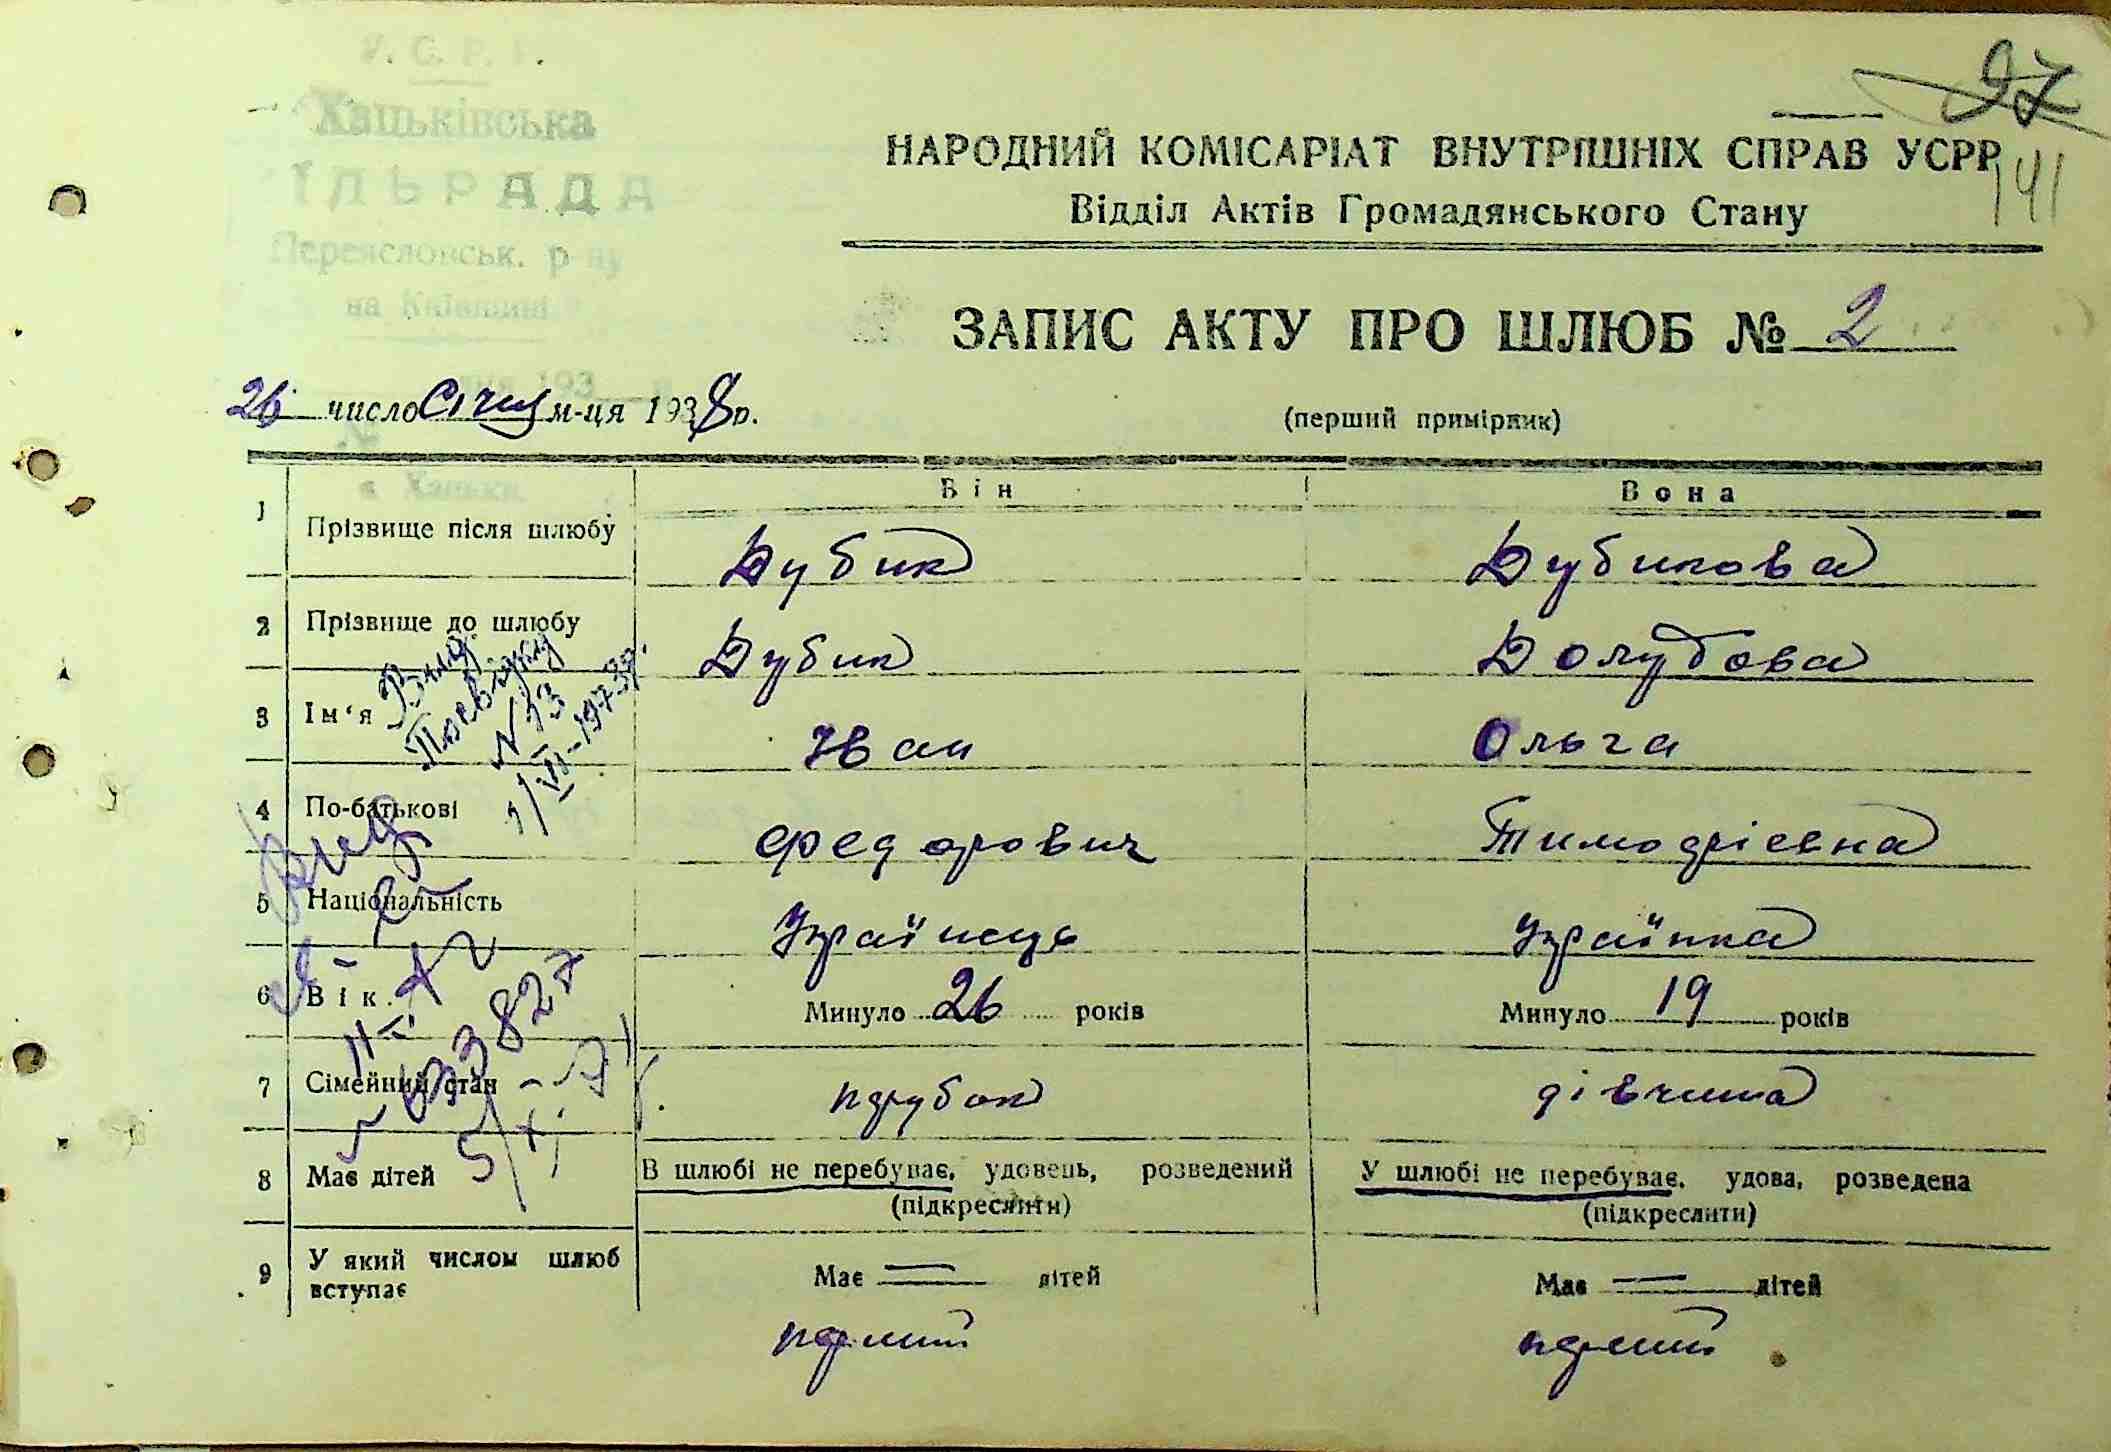 У. С. Р. Р.
Хацьківська
СІЛЬРАДА
Переясловськ. р-ну
на Київщині
193
с. Хацьки
97
141
НАРОДНИЙ КОМІСАРІАТ ВНУТРІШНІХ СПРАВ УСРР
Відділ Актів Громадянського Стану
ЗАПИС АКТУ ПРО ШЛЮБ № 2
26 число Січня м-ця 1938 р.
(перший примірник)
Він Вона
1 Прізвище після шлюбу Дубик Дубикова
2 Прізвище до шлюбу Дубик Долубова
3 Ім‘я Іван Ольга
4 По-батькові Федорович Тимофієвна
5 Національність Українець Українка
6 Вік. Минуло 26 років Минуло 19 років
7 Сімейний стан парубок дівчина
8 Має дітей В шлюбі не перебуває, удовець, розведений У шлюбі не перебуває, удова, розведена
(підкреслити) (підкреслити)
9 У який числом шлюб вступає Має дітей Має дітей
перший перший
Вида
Посвідку
№ 13